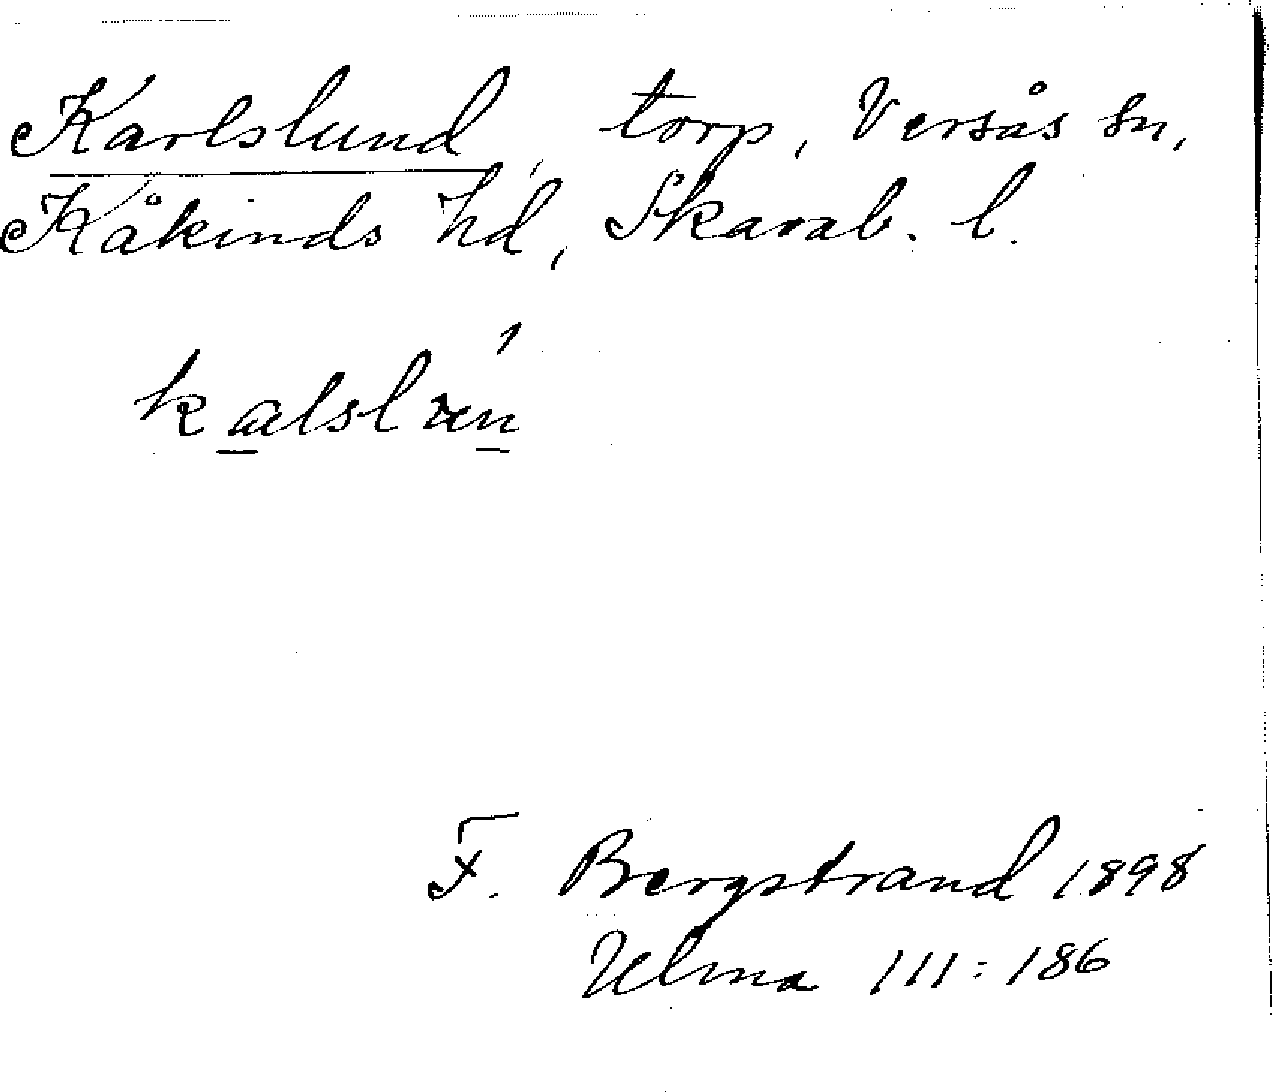 Karlslund, torp, Versås sn,
Kåkinds hd, Skarab. l.
F. Bergstrand 1898
Ulma 111:186